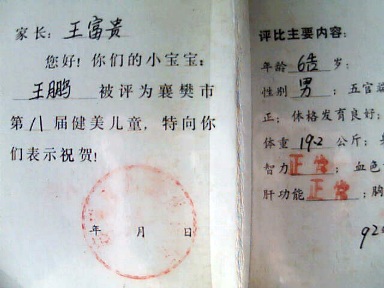 家长：王富贵
您好！你们的小宝宝：
王鹏 被评为襄樊市
第八届健美儿童，特向你
们表示祝贺！
年 月 日
评比主要内容：
年龄 岁：
性别 男 ；五官
正；体格发育良好；
体重 19.2 公斤；
智力 正常 ；血色
肝功能 正常 ；胸